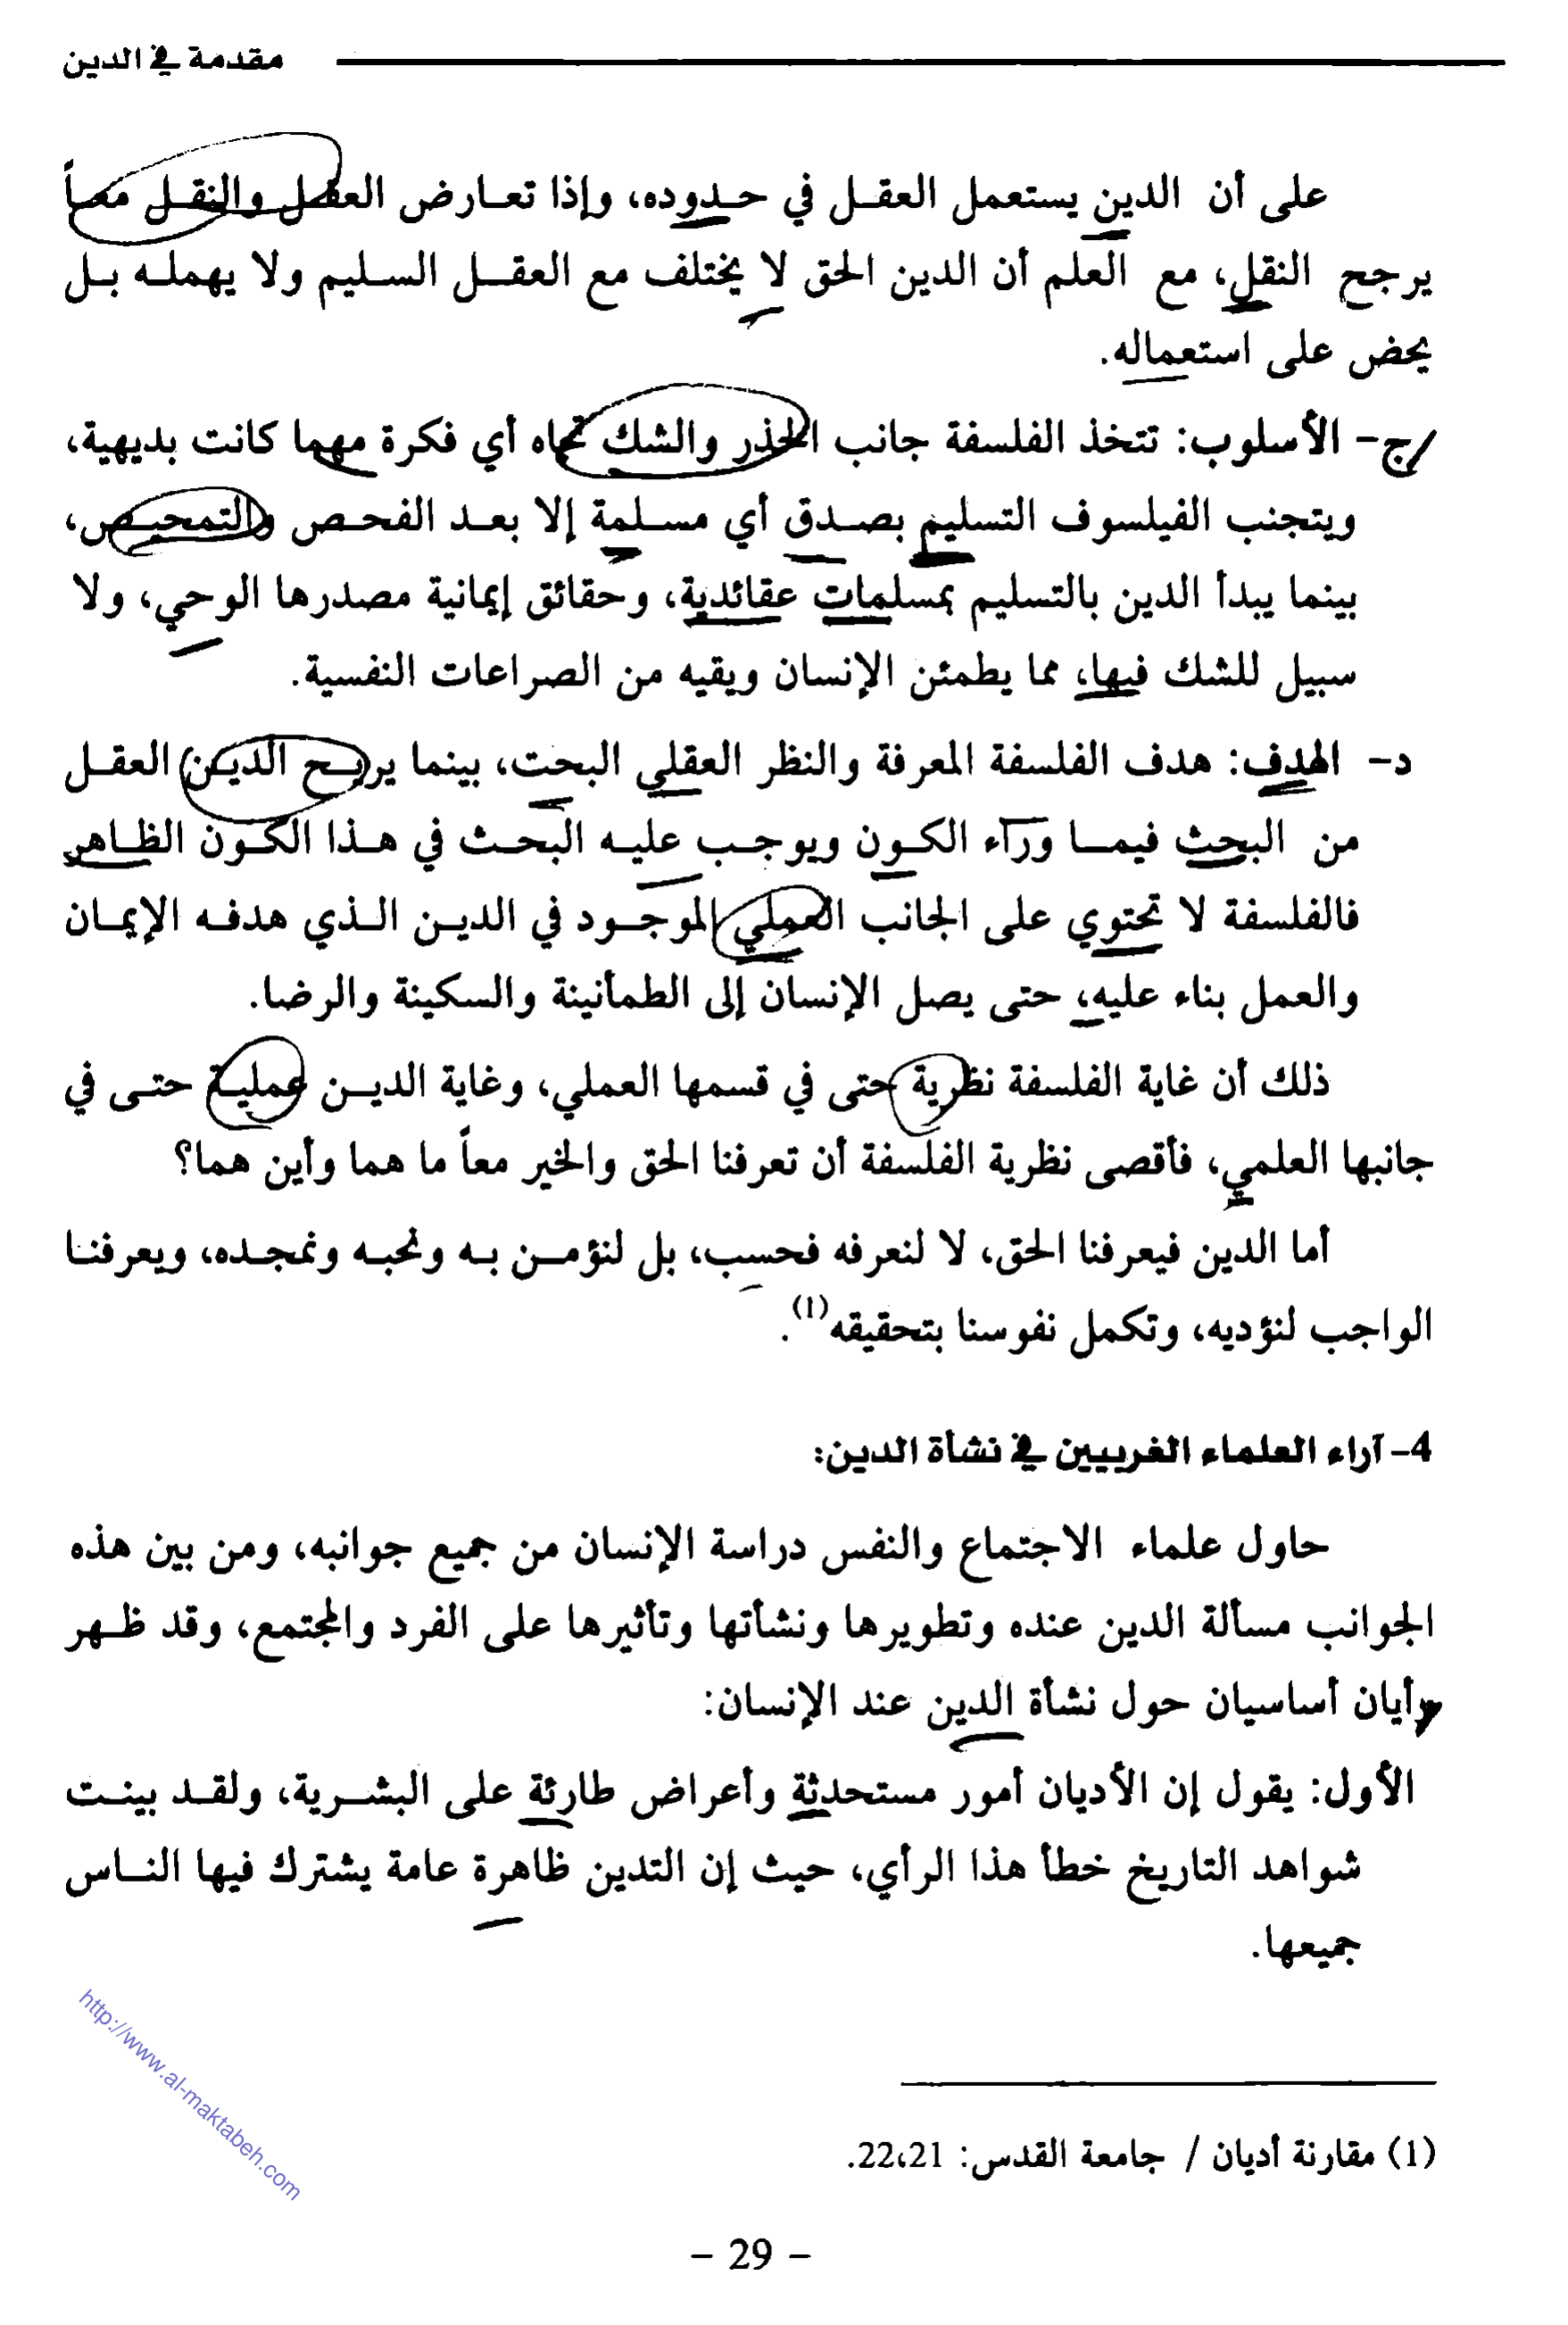 مقدمة في الدين
على أن الدين يستعمل العقل في حدوده، وإذا تعارض العقل والنقل معاً
يرجح النقل، مع العلم أن الدين الحق لا يختلف مع العقل السليم ولا يهمله بل
يحض على استعماله.
ج- الأسلوب: تتخذ الفلسفة جانب الحذر والشك تجاه أي فكرة مهما كانت بديهية،
ويتجنب الفيلسوف التسليم بصدق أي مسلمة إلا بعد الفحص والتمحيص،
بينما يبدأ الدين بالتسليم بمسلمات عقائدية، وحقائق إيمانية مصدرها الوحي، ولا
سبيل للشك فيها، مما يطمئن الإنسان ويقيه من الصراعات النفسية.
د- الهدف: هدف الفلسفة المعرفة والنظر العقلي البحت، بينما يريح الدين العقل
من البحث فيما وراء الكون ويوجب عليه البحث في هذا الكون الظاهر
فالفلسفة لا تحتوي على الجانب العملي الموجود في الدين الذي هدفه الإيمان
والعمل بناء عليه، حتى يصل الإنسان إلى الطمأنينة والسكينة والرضا.
ذلك أن غاية الفلسفة نظرية حتى في قسمها العملي، وغاية الدين عملية حتى في
جانبها العلمي، فأقصى نظرية الفلسفة أن تعرفنا الحق والخير معاً ما هما وأين هما؟
أما الدين فيعرفنا الحق، لا لنعرفه فحسب، بل لنؤمن به ونحبه ونمجده، ويعرفنا
الواجب لنؤديه، وتكمل نفوسنا بتحقيقه(1).
4- آراء العلماء الغربيين في نشأة الدين:
حاول علماء الاجتماع والنفس دراسة الإنسان من جميع جوانبه، ومن بين هذه
الجوانب مسألة الدين عنده وتطويرها ونشأتها وتأثيرها على الفرد والمجتمع، وقد ظهر
رأيان أساسيان حول نشأة الدين عند الإنسان:
الأول: يقول إن الأديان أمور مستحدثة وأعراض طارئة على البشرية، ولقد بينت
شواهد التاريخ خطأ هذا الرأي، حيث إن التدين ظاهرة عامة يشترك فيها الناس
جميعها.
http://www.al-maktabeh.com
(1) مقارنة أديان / جامعة القدس: 22،21.
- 29 -